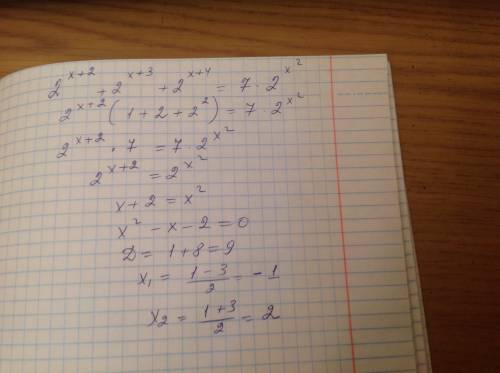 2^{x+2} + 2^{x+3} + 2^{x+4} = 7 · 2^{x^2}
2^{x+2} (1 + 2 + 2^2) = 7 · 2^{x^2}
2^{x+2} · 7 = 7 · 2^{x^2}
2^{x+2} = 2^{x^2}
x + 2 = x^2
x^2 - x - 2 = 0
D = 1 + 8 = 9
x_1 = \frac{1-3}{2} = -1
x_2 = \frac{1+3}{2} = 2